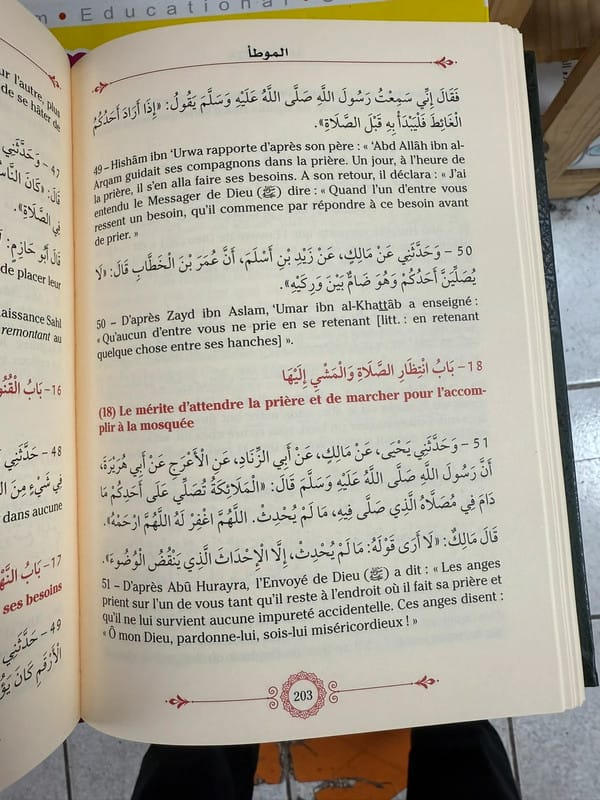 Educational
r l'autre, plus
de se hâter de
47 – وَحَدَّثَنِي
قَالَ: «كَانَ النَّاسُ
فِي الصَّلَاةِ».
قَالَ أَبُو حَازِمٍ:
de placer leur
naissance Sahl
remontant au
16 – بَابُ الْقُنُو
48 – حَدَّثَنِي
فِي شَيْءٍ مِنَ
dans aucune
17 – بَابُ النَّهْ
ses besoins
49 – حَدَّثَنِي
الْأَرْقَمِ كَانَ يَؤُ
الموطأ
فَقَالَ إِنِّي سَمِعْتُ رَسُولَ اللَّهِ صَلَّى اللَّهُ عَلَيْهِ وَسَلَّمَ يَقُولُ: «إِذَا أَرَادَ أَحَدُكُمُ
الْغَائِطَ فَلْيَبْدَأْ بِهِ قَبْلَ الصَّلَاةِ».
49 – Hishâm ibn 'Urwa rapporte d'après son père : « 'Abd Allâh ibn al-
Arqam guidait ses compagnons dans la prière. Un jour, à l'heure de
la prière, il s'en alla faire ses besoins. A son retour, il déclara : « J'ai
entendu le Messager de Dieu (ﷺ) dire : « Quand l'un d'entre vous
ressent un besoin, qu'il commence par répondre à ce besoin avant
de prier. »
50 – وَحَدَّثَنِي عَنْ مَالِكٍ، عَنْ زَيْدِ بْنِ أَسْلَمَ، أَنَّ عُمَرَ بْنَ الْخَطَّابِ قَالَ: «لَا
يُصَلِّيَنَّ أَحَدُكُمْ وَهُوَ ضَامٌّ بَيْنَ وَرِكَيْهِ».
50 – D'après Zayd ibn Aslam, 'Umar ibn al-Khattâb a enseigné :
« Qu'aucun d'entre vous ne prie en se retenant [litt. : en retenant
quelque chose entre ses hanches] ».
18 – بَابُ انْتِظَارِ الصَّلَاةِ وَالْمَشْيِ إِلَيْهَا
(18) Le mérite d'attendre la prière et de marcher pour l'accom-
plir à la mosquée
51 – وَحَدَّثَنِي يَحْيَى، عَنْ مَالِكٍ، عَنْ أَبِي الزِّنَادِ، عَنِ الْأَعْرَجِ عَنْ أَبِي هُرَيْرَةَ،
أَنَّ رَسُولَ اللَّهِ صَلَّى اللَّهُ عَلَيْهِ وَسَلَّمَ قَالَ: «الْمَلَائِكَةُ تُصَلِّي عَلَى أَحَدِكُمْ مَا
دَامَ فِي مُصَلَّاهُ الَّذِي صَلَّى فِيهِ، مَا لَمْ يُحْدِثْ. اللَّهُمَّ اغْفِرْ لَهُ اللَّهُمَّ ارْحَمْهُ».
قَالَ مَالِكٌ: «لَا أَرَى قَوْلَهُ: مَا لَمْ يُحْدِثْ، إِلَّا الْإِحْدَاثَ الَّذِي يَنْقُضُ الْوُضُوءَ».
51 – D'après Abû Hurayra, l'Envoyé de Dieu (ﷺ) a dit : « Les anges
prient sur l'un de vous tant qu'il reste à l'endroit où il fait sa prière et
qu'il ne lui survient aucune impureté accidentelle. Ces anges disent :
« Ô mon Dieu, pardonne-lui, sois-lui miséricordieux ! »
203